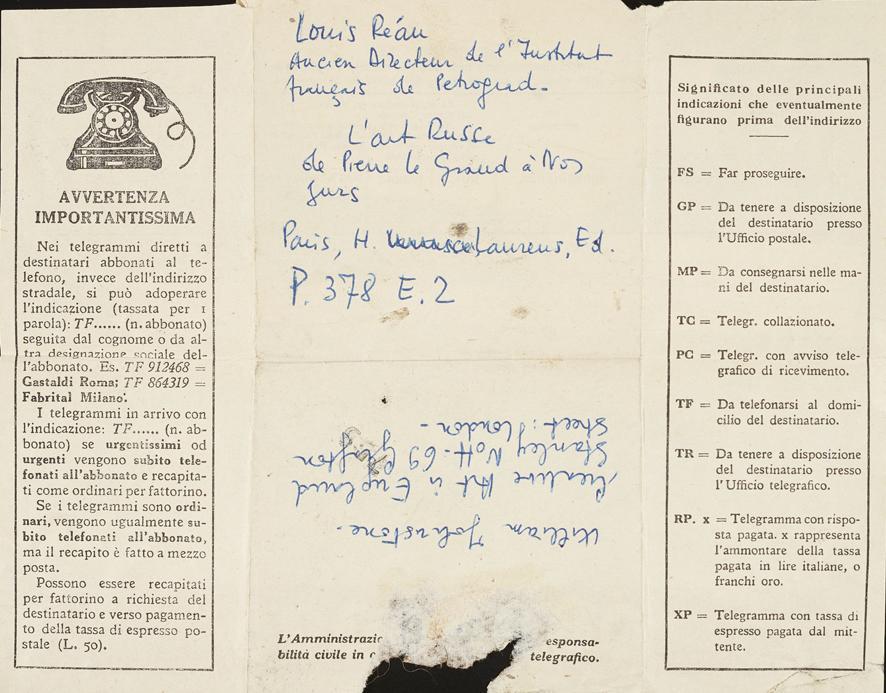 AVVERTENZA
IMPORTANTISSIMA
Nei telegrammi diretti a
destinatari abbonati al te-
lefono, invece dell'indirizzo
stradale, si può adoperare
l'indicazione (tassata per 1
parola): TF...... (n. abbonato)
seguita dal cognome o da al-
tra designazione sociale del-
l'abbonato. Es. TF 912468 =
Gastaldi Roma; TF 864319 =
Fabrital Milano.
I telegrammi in arrivo con
l'indicazione: TF...... (n. ab-
bonato) se urgentissimi od
urgenti vengono subito tele-
fonati all'abbonato e recapita-
ti come ordinari per fattorino.
Se i telegrammi sono ordi-
nari, vengono ugualmente su-
bito telefonati all'abbonato,
ma il recapito è fatto a mezzo
posta.
Possono essere recapitati
per fattorino a richiesta del
destinatario e verso pagamen-
to della tassa di espresso po-
stale (L. 50).
Louis Réau
Ancien Directeur de l'Institut
français de Petrograd.
L'art Russe
de Pierre le Grand à Nos
Jurs
Paris, H. Laurens, Ed.
P. 378 E. 2
William Johnstone.
Creative Art in England
Stanley Nott - 69 Grafton
Street: London -
L'Amministrazio esponsa-
bilità civile in c telegrafico.
Significato delle principali
indicazioni che eventualmente
figurano prima dell'indirizzo
FS = Far proseguire.
GP = Da tenere a disposizione
del destinatario presso
l'Ufficio postale.
MP = Da consegnarsi nelle ma-
ni del destinatario.
TC = Telegr. collazionato.
PC = Telegr. con avviso tele-
grafico di ricevimento.
TF = Da telefonarsi al domi-
cilio del destinatario.
TR = Da tenere a disposizione
del destinatario presso
l'Ufficio telegrafico.
RP. x = Telegramma con rispo-
sta pagata. x rappresenta
l'ammontare della tassa
pagata in lire italiane, o
franchi oro.
XP = Telegramma con tassa di
espresso pagata dal mit-
tente.